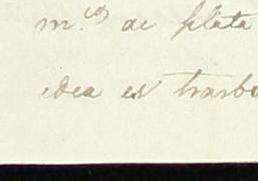 m.cos de plata
idea es trasbo